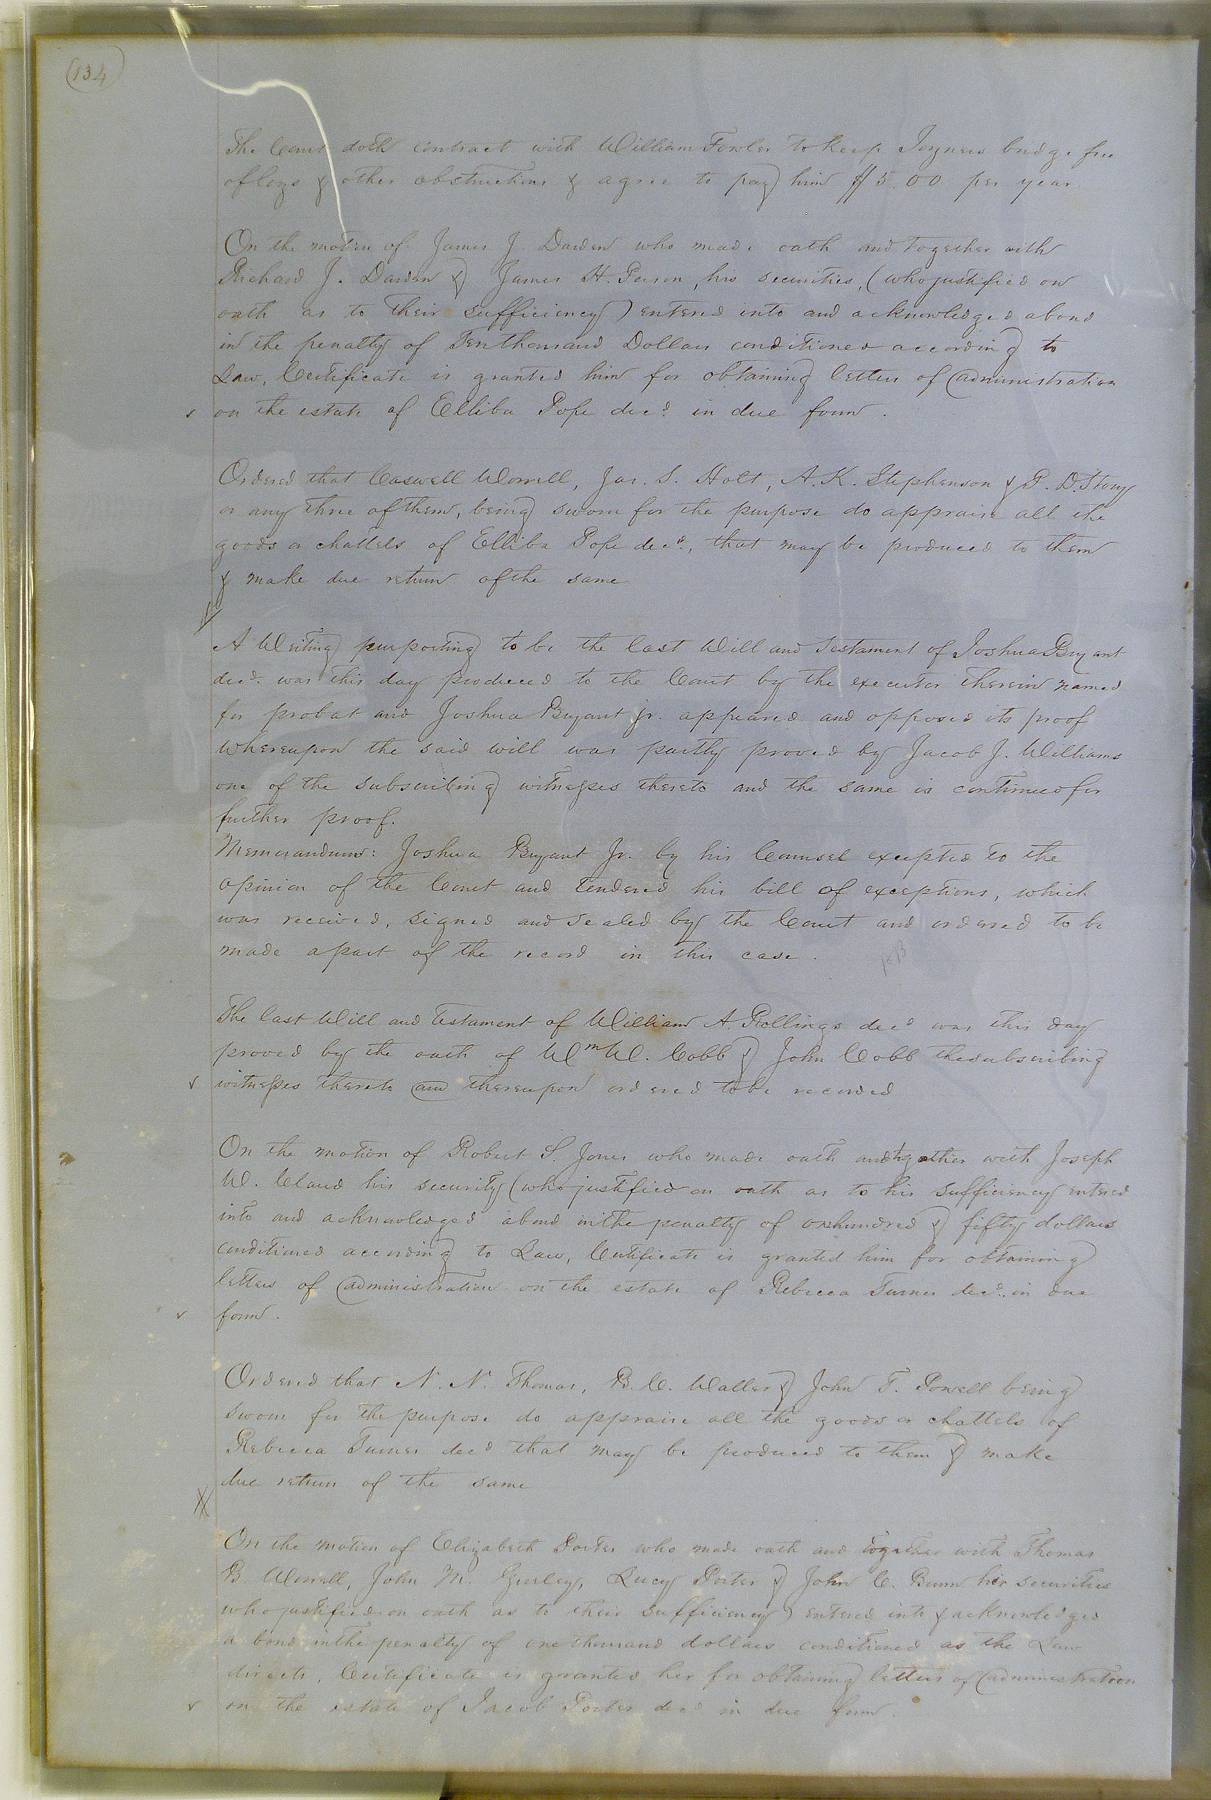 (134)
The Court doth contract with William Fowler to keep Joyners bridge free
of logs & other obstructions & agree to pay him $5.00 per year.
On the motion of James J. Darden who made oath and together with
Richard J. Darden & James H. his securities, (who justified on
oath as to their sufficiency) entered into and acknowledged a bond
in the penalty of Ten thousand Dollars conditioned according to
Law, Certificate is granted him for obtaining letters of administration
on the estate of Elliba Pope decd. in due form.
Ordered that Caswell Worrell, Jas. S. Holt, A. K. Stephenson & G. D. Story
or any three of them, being sworn for the purpose do appraise all the
goods or chattels of Elliba Pope decd., that may be produced to them
& make due return of the same
A Writing purporting to be the last Will and Testament of Joshua Bryant
decd. was this day produced to the Court by the executor therein named
for probat and Joshua Bryant jr. appeared and opposed its proof
whereupon the said will was partly proved by Jacob J. Williams
one of the subscribing witnesses thereto and the same is continued for
further proof.
Memorandum: Joshua Bryant Jr. by his Counsel excepted to the
opinion of the Court and tendered his bill of exceptions, which
was received, signed and sealed by the Court and ordered to be
made a part of the record in this case.
The last Will and Testament of William A. Rollings decd was this day
proved by the oath of Wm W. Cobb & John Cobb the subscribing
witnesses thereto and thereupon ordered to be recorded
On the motion of Robert S. Jones who made oath and together with Joseph
W. Claud his security (who justified on oath as to his sufficiency entered
into and acknowledged a bond in the penalty of one hundred & fifty dollars
conditioned according to Law, Certificate is granted him for obtaining
letters of administration on the estate of Rebecca Turner decd. in due
form.
Ordered that N. N. Thomas, B. C. Waller & John T. Powell being
sworn for the purpose do appraise all the goods or chattels of
Rebecca Turner decd that may be produced to them & make
due return of the same
On the motion of Elizabeth Porter who made oath and together with Thomas
B. Worrell, John M. Gurley, Lucy Porter & John C. Bunn her securities
who justified on oath as to their sufficiency) entered into & acknowledged
a bond in the penalty of one thousand dollars conditioned as the Law
directs, Certificate is granted her for obtaining letters of administration
on the estate of Jacob Porter decd in due form.